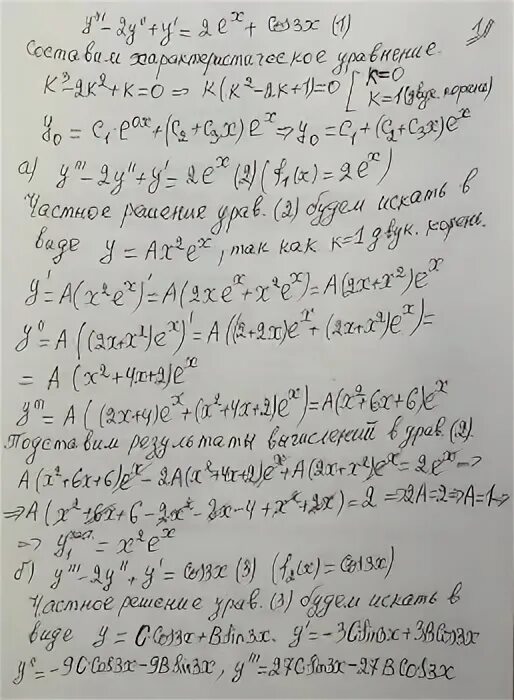 y''' - 2y'' + y' = 2e^x + cos3x (1)
1)
Составим характеристическое уравнение.
K³ - 2K² + K = 0 ⇒ K(K² - 2K + 1) = 0 [ K=0
K=1 (двук. корень)
y₀ = C₁·e^{0x} + (C₂ + C₃x)e^x ⇒ y₀ = C₁ + (C₂ + C₃x)e^x
а) y''' - 2y'' + y' = 2e^x (2) (f₁(x) = 2e^x)
Частное решение урав. (2) будем искать в
виде y = Ax²e^x, так как к=1 двук. корень.
y' = A(x²e^x)' = A(2xe^x + x²e^x) = A(2x + x²)e^x
y'' = A((2x + x²)e^x)' = A((2 + 2x)e^x + (2x + x²)e^x) =
= A(x² + 4x + 2)e^x
y''' = A((2x + 4)e^x + (x² + 4x + 2)e^x) = A(x² + 6x + 6)e^x
Подставим результаты вычислений в урав. (2).
A(x² + 6x + 6)e^x - 2A(x² + 4x + 2)e^x + A(2x + x²)e^x = 2e^x ⇒
⇒ A(x² + 6x + 6 - 2x² - 8x - 4 + x² + 2x) = 2 ⇒ 2A = 2 ⇒ A = 1 ⇒
⇒ y₁ = x²e^x
б) y''' - 2y'' + y' = cos3x (3) (f₂(x) = cos3x)
Частное решение урав. (3) будем искать в
виде y = C cos3x + B sin3x. y' = -3C sin3x + 3B cos3x
y'' = -9C cos3x - 9B sin3x, y''' = 27C sin3x - 27B cos3x